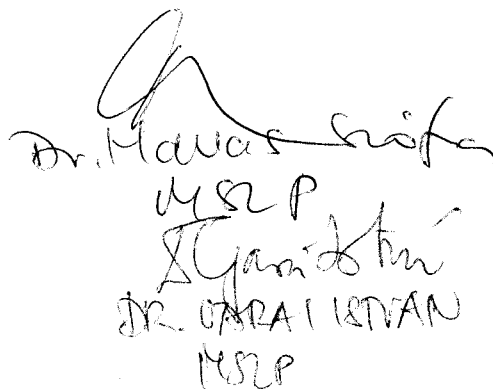 Dr. Havas Szófia
MSZP
DR. GARAI ISTVÁN
MSZP